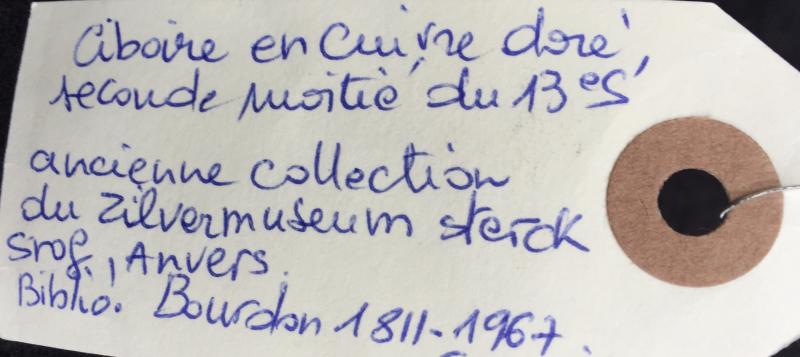 Ciboire en Cuivre doré,
seconde moitié du 13eS
ancienne collection
du Zilvermuseum sterck
shof, Anvers.
Biblio. Bourdon 1811-1967.